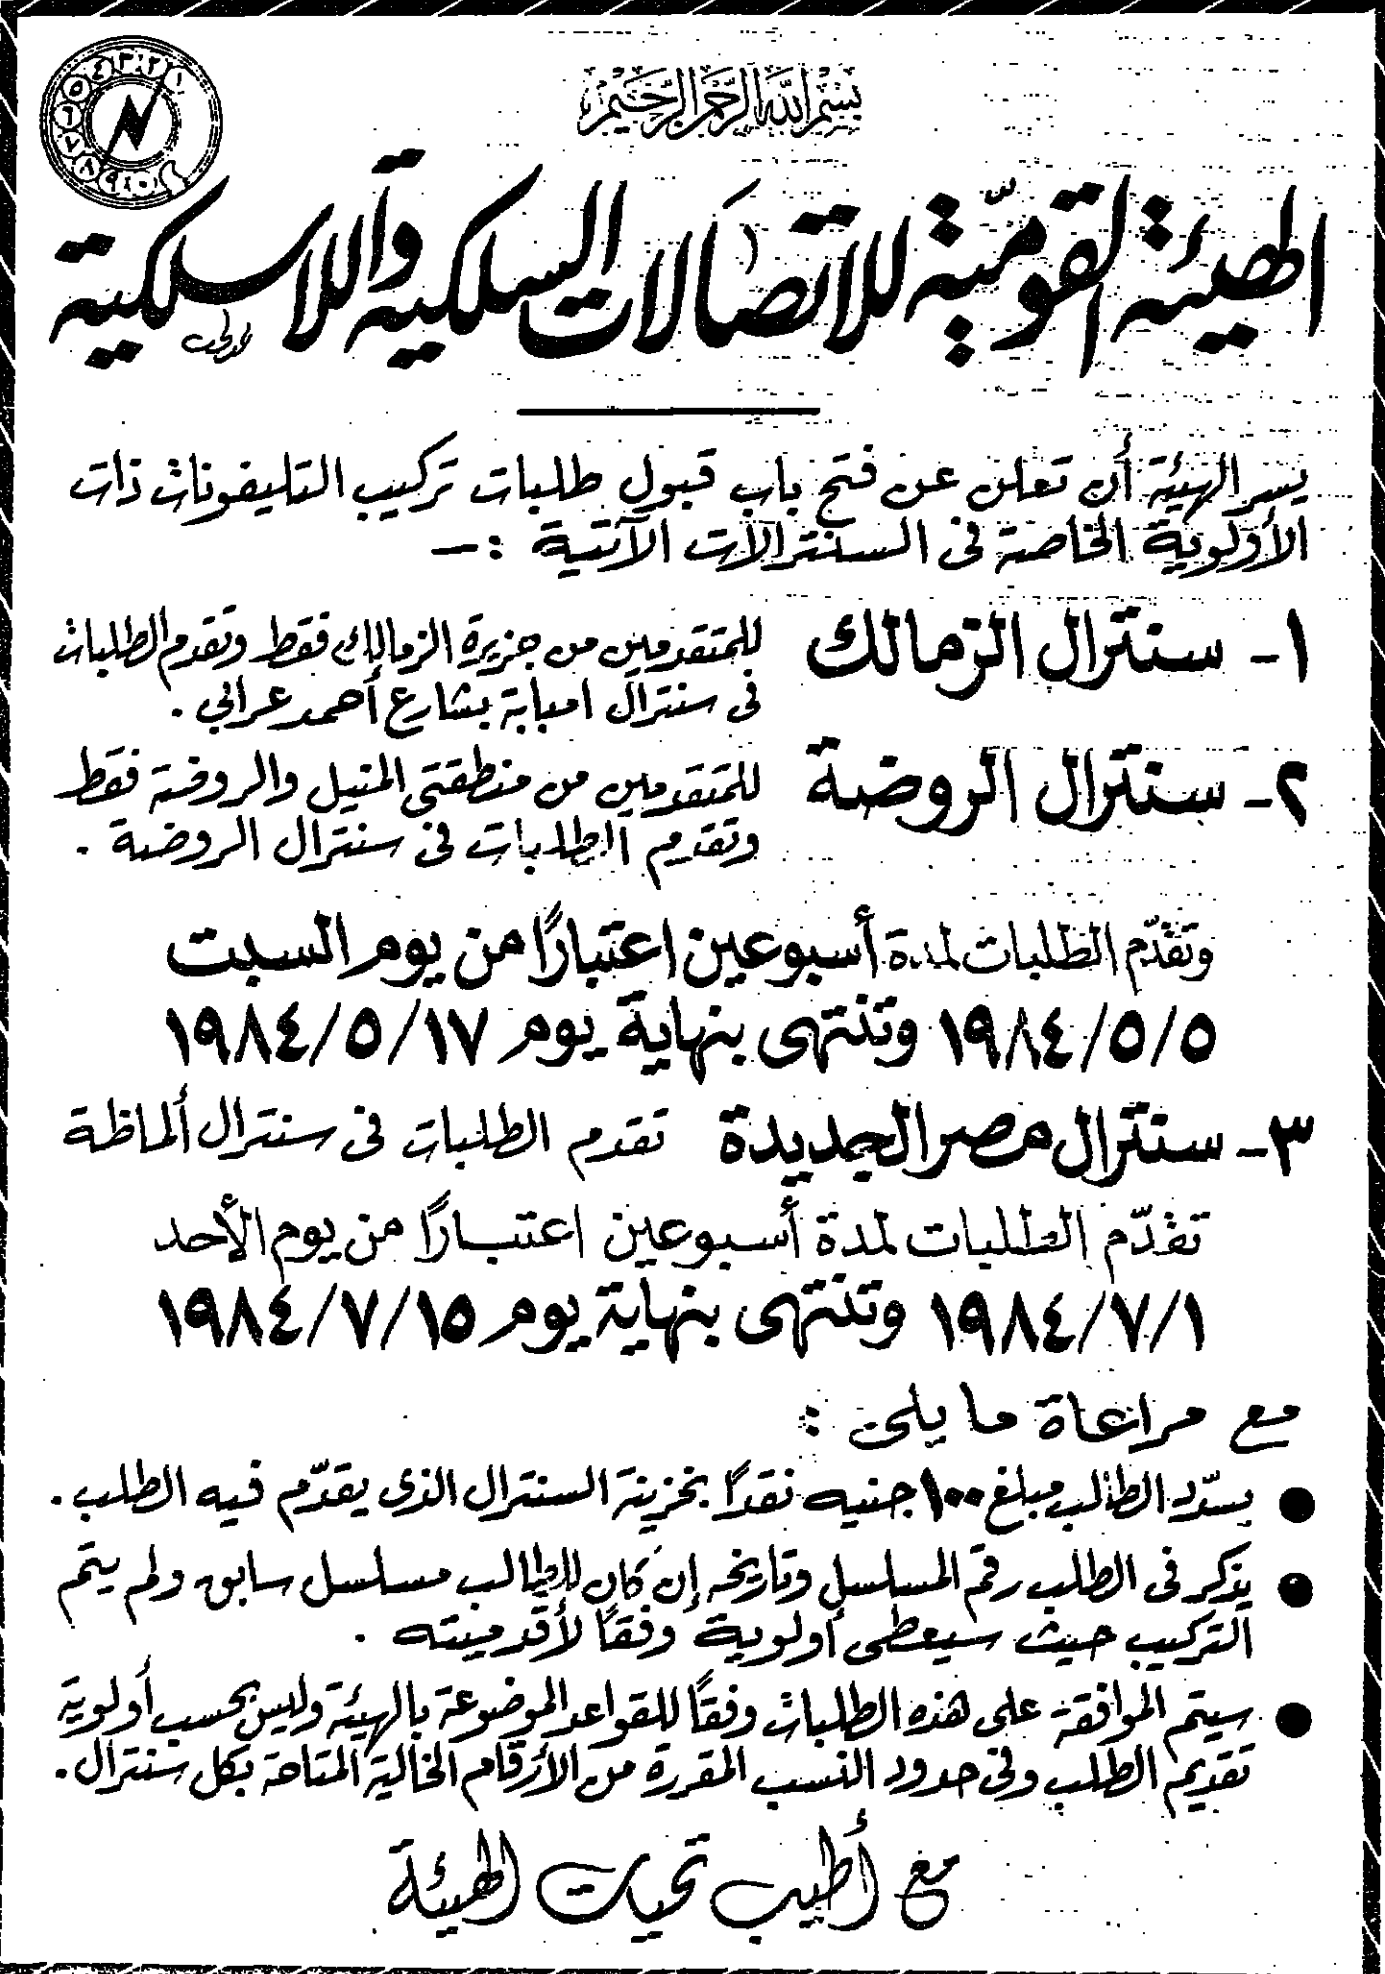 ١ ٢ ٣ ٤ ٥ ٦ ٧ ٨ ٩ ٠
بسم الله الرحمن الرحيم
الهيئة القومية للاتصالات السلكية واللاسلكية
يسر الهيئة أن تعلن عن فتح باب قبول طلبات تركيب التليفونات ذات
الأولوية الخاصة فى السنترالات الآتية :-
١- سنترال الزمالك للمتقدمين من جزيرة الزمالك فقط وتقدم الطلبات
فى سنترال امبابة بشارع أحمد عرابي .
٢- سنترال الروضة للمتقدمين من منطقتى المنيل والروضة فقط
وتقدم الطلبات فى سنترال الروضة .
وتقدّم الطلبات لمدة أسبوعين اعتبارًا من يوم السبت
١٩٨٤/٥/٥ وتنتهى بنهاية يوم ١٩٨٤/٥/١٧
٣- سنترال مصر الجديدة تقدم الطلبات فى سنترال ألماظة
تقدّم الطلبات لمدة أسبوعين اعتبارًا من يوم الأحد
١٩٨٤/٧/١ وتنتهى بنهاية يوم ١٩٨٤/٧/١٥
مع مراعاة ما يلى :
● يسدّد الطالب مبلغ ١٠٠ جنيه نقدًا بخزينة السنترال الذى يقدّم فيه الطلب .
● يذكر فى الطلب رقم المسلسل وتاريخه إن كان للطالب مسلسل سابق ولم يتم
التركيب حيث سيعطى أولوية وفقًا لأقدميته .
● سيتم الموافقة على هذه الطلبات وفقًا للقواعد الموضوعة بالهيئة وليس بحسب أولوية
تقديم الطلب وفى حدود النسب المقررة من الأرقام الخالية المتاحة بكل سنترال .
مع أطيب تحيات الهيئة